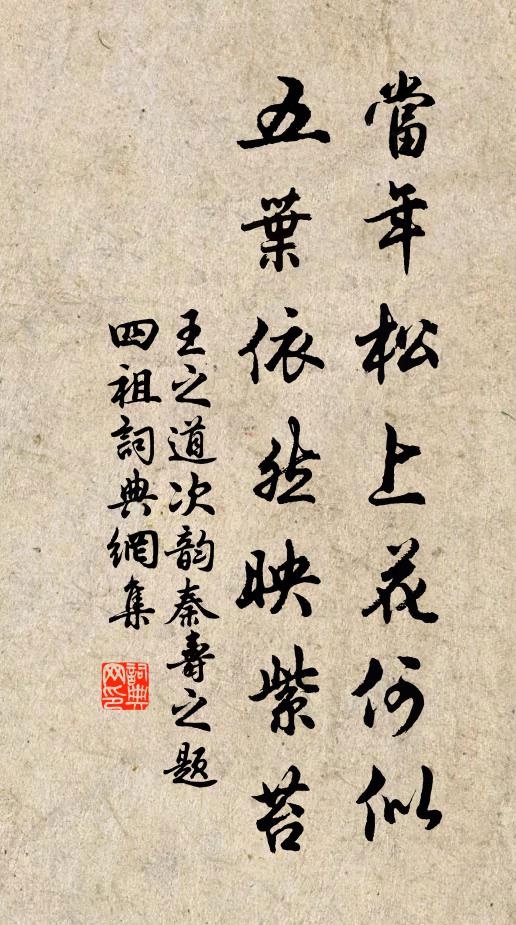 當年松上花何似
五葉依然映紫苔
王之道次韵秦壽之題
四祖詞典網集
詞典
网印